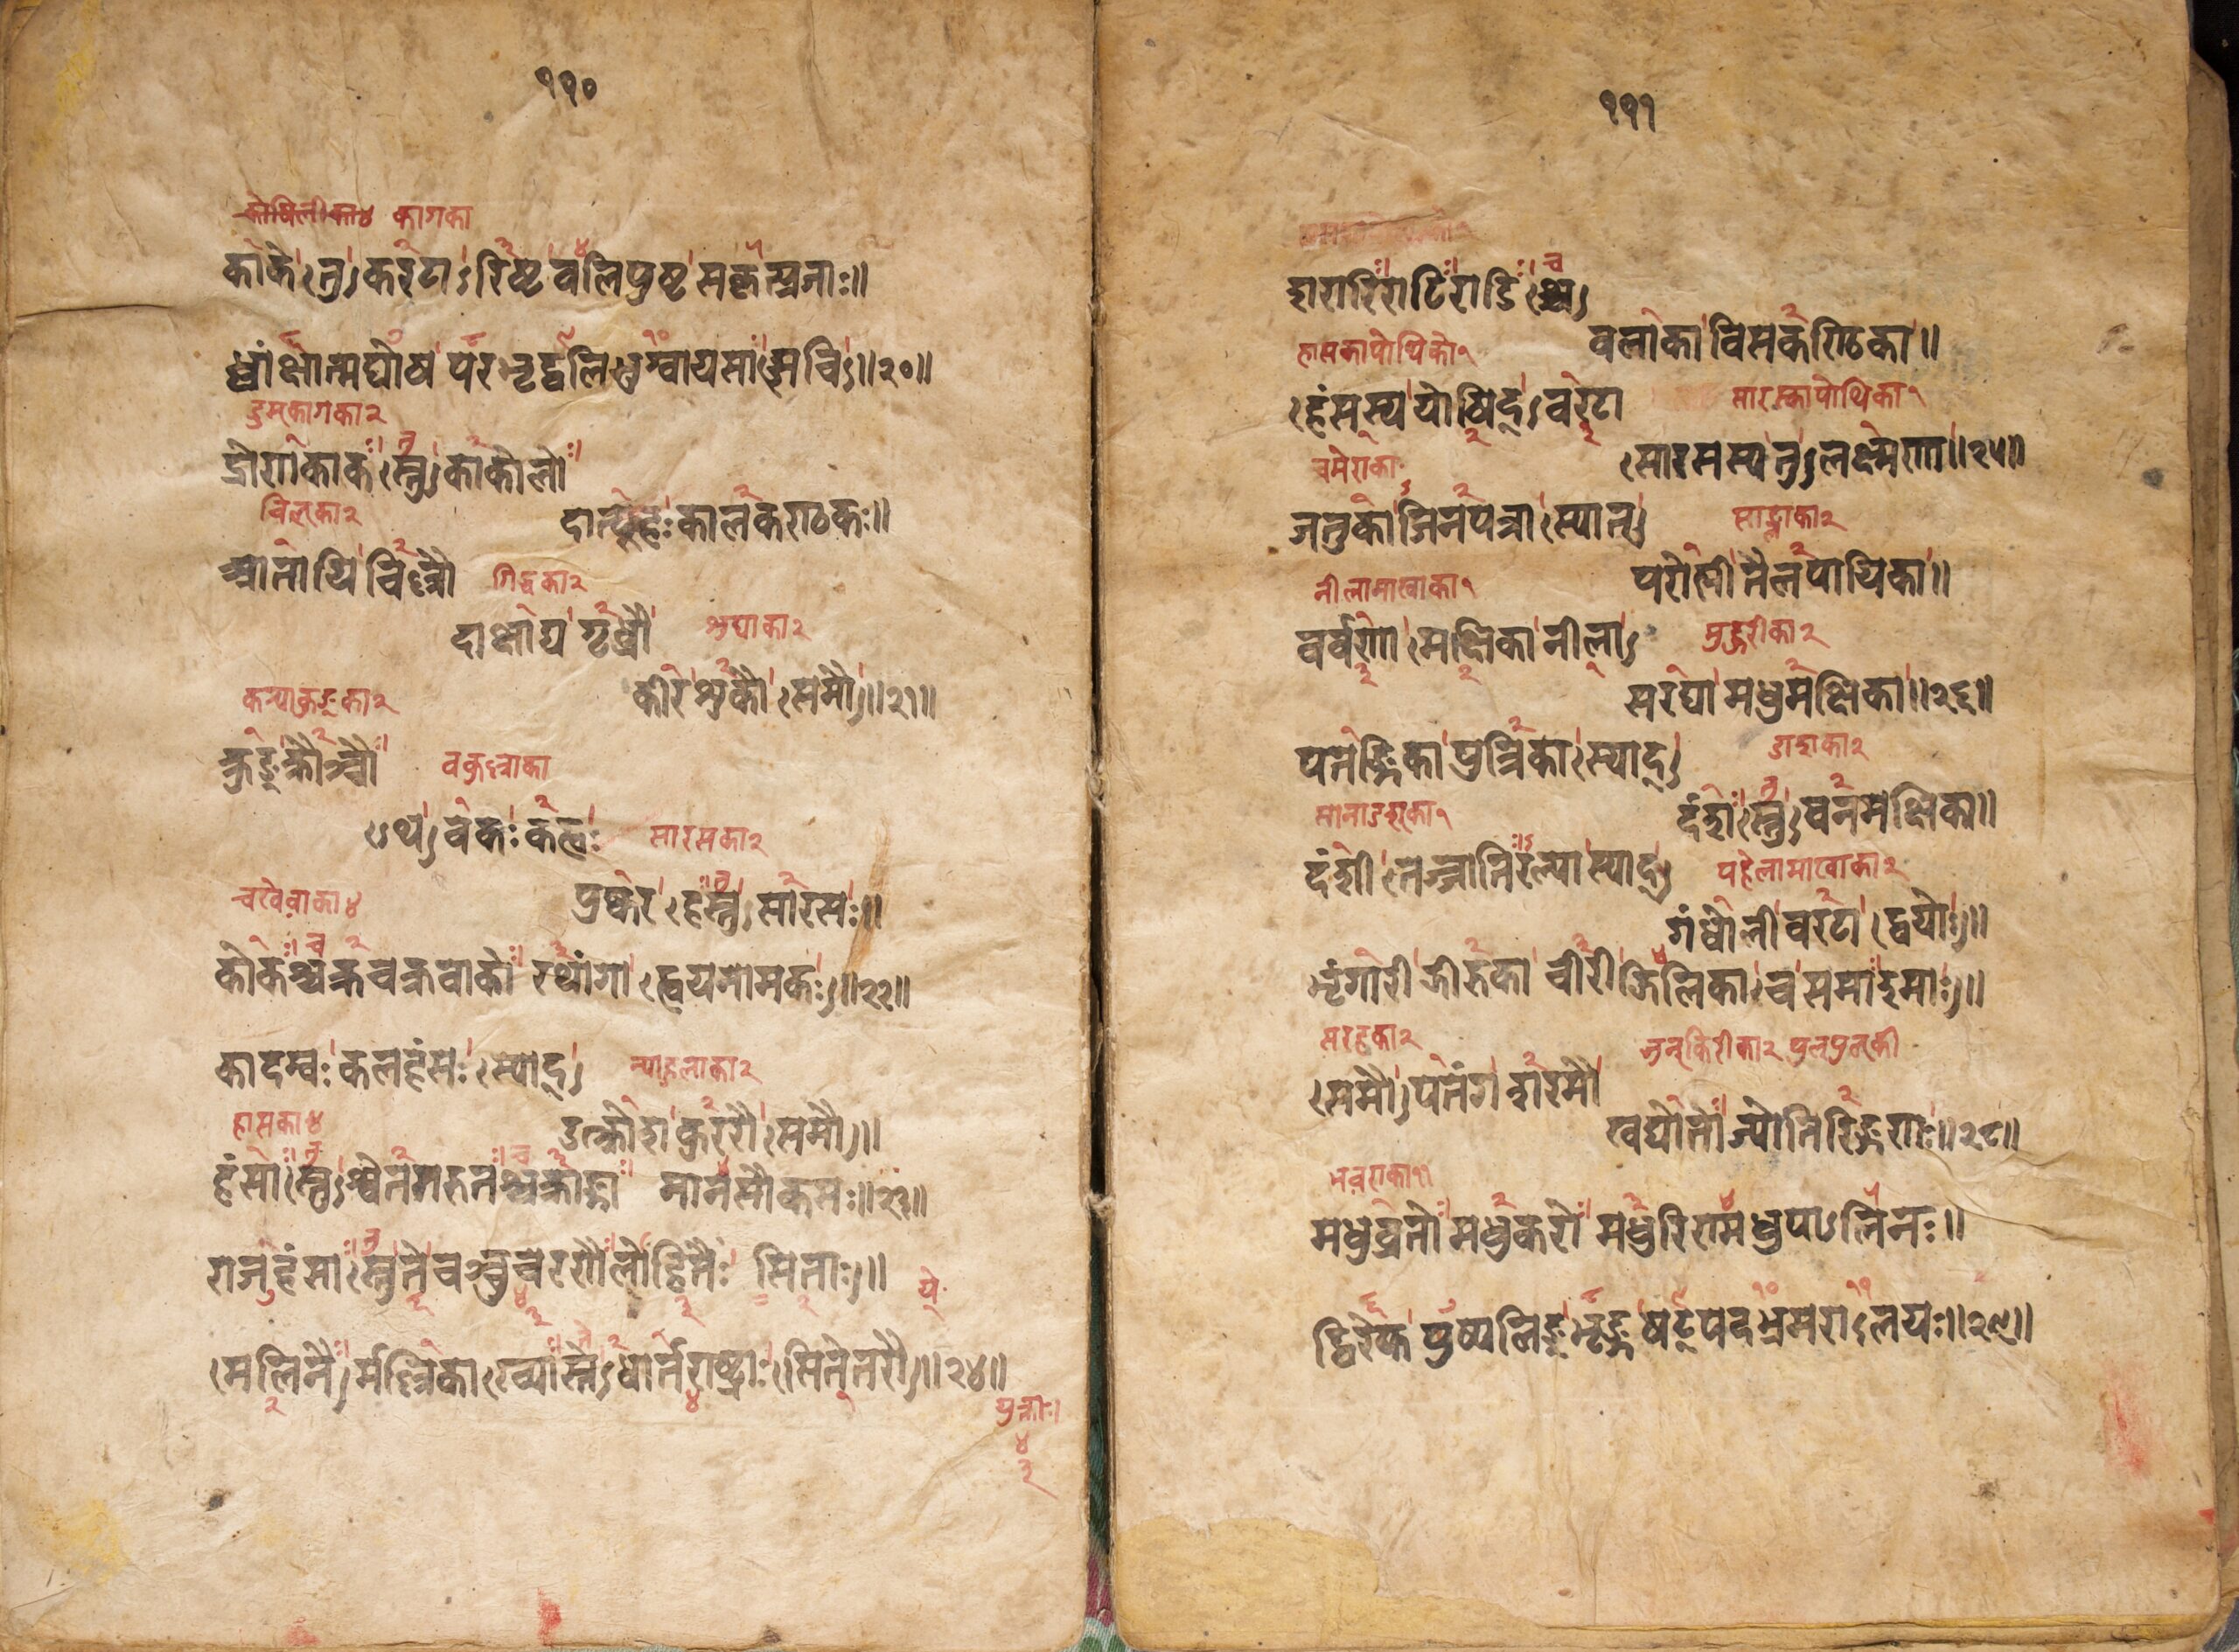 ११०
कागका
काके तु करटारिष्टवलिपुष्टसकृत्प्रजाः॥
ध्वांक्षात्मघोषपरभृद्वलिभुग्वायसा अपि॥२०॥
डुम्कागका२
द्रोणकाकस्तु काकोलो
चिल्का२
दात्यूहः कालकण्ठकः॥
आतायिचिल्लौ
गिद्धका२
दाक्षाय्यगृध्रौ
शुघाका२
कीरशुकौ समौ॥२१॥
कन्याकुङ्का२
क्रुङ्क्रौञ्चौ
वकुल्लाका
ऽथ वकः कह्वः
सारसका२
पुष्कराह्वस्तु सारसः॥
चखेवाका४
कोकश्चक्रचक्रवाको रथांगाह्वयनामकः॥२२॥
कादम्वः कलहंसः स्याद्
न्याहुलाका२
उत्क्रोशकुररौ समौ॥
हासका४
हंसास्तु श्वेतगरुतश्चक्राङ्गा मानसौकसः॥२३॥
राजहंसास्तु ते चञ्चुचरणौर्लोहितैः सिताः॥
ये
मलिनैर्मल्लिकाख्यास्ते धार्तराष्ट्राः सितेतरौ॥२४॥
१११
शरारिराटिराडिश्च
वलाका विसकण्ठिका॥
हासकापोथिका१
हंसस्य योषिद् वरटा
सारस्कापोथिका१
सारसस्य तु लक्ष्मणा॥२५॥
चमेराका
जतुकाजिनपत्रा स्यात्
साङ्लाका२
परोष्णी तैलपायिका॥
नीलामाखाका१
वर्वणा मक्षिका नीला
मुङ्रीका२
सरघा मधुमक्षिका॥२६॥
पतङ्गिका पुत्रिका स्याद्
डाशका२
दंशस्तु वनमक्षिका॥
दंशी तज्जातिरल्पा स्याद्
पहेलामाखाका२
गंधोली वरटा द्वयोः॥
भृंगारी झीरुका चीरी झिल्लिका च समा इमाः॥
सरहका२
समौ पतंगशरभौ
खद्योतो ज्योतिरिङ्गणः॥२८॥
मधुव्रतो मधुकरो मधुलिण्मधुपालिनः॥
द्विरेफपुष्पलिड्भृङ्गषट्पदभ्रमरालयः॥२९॥